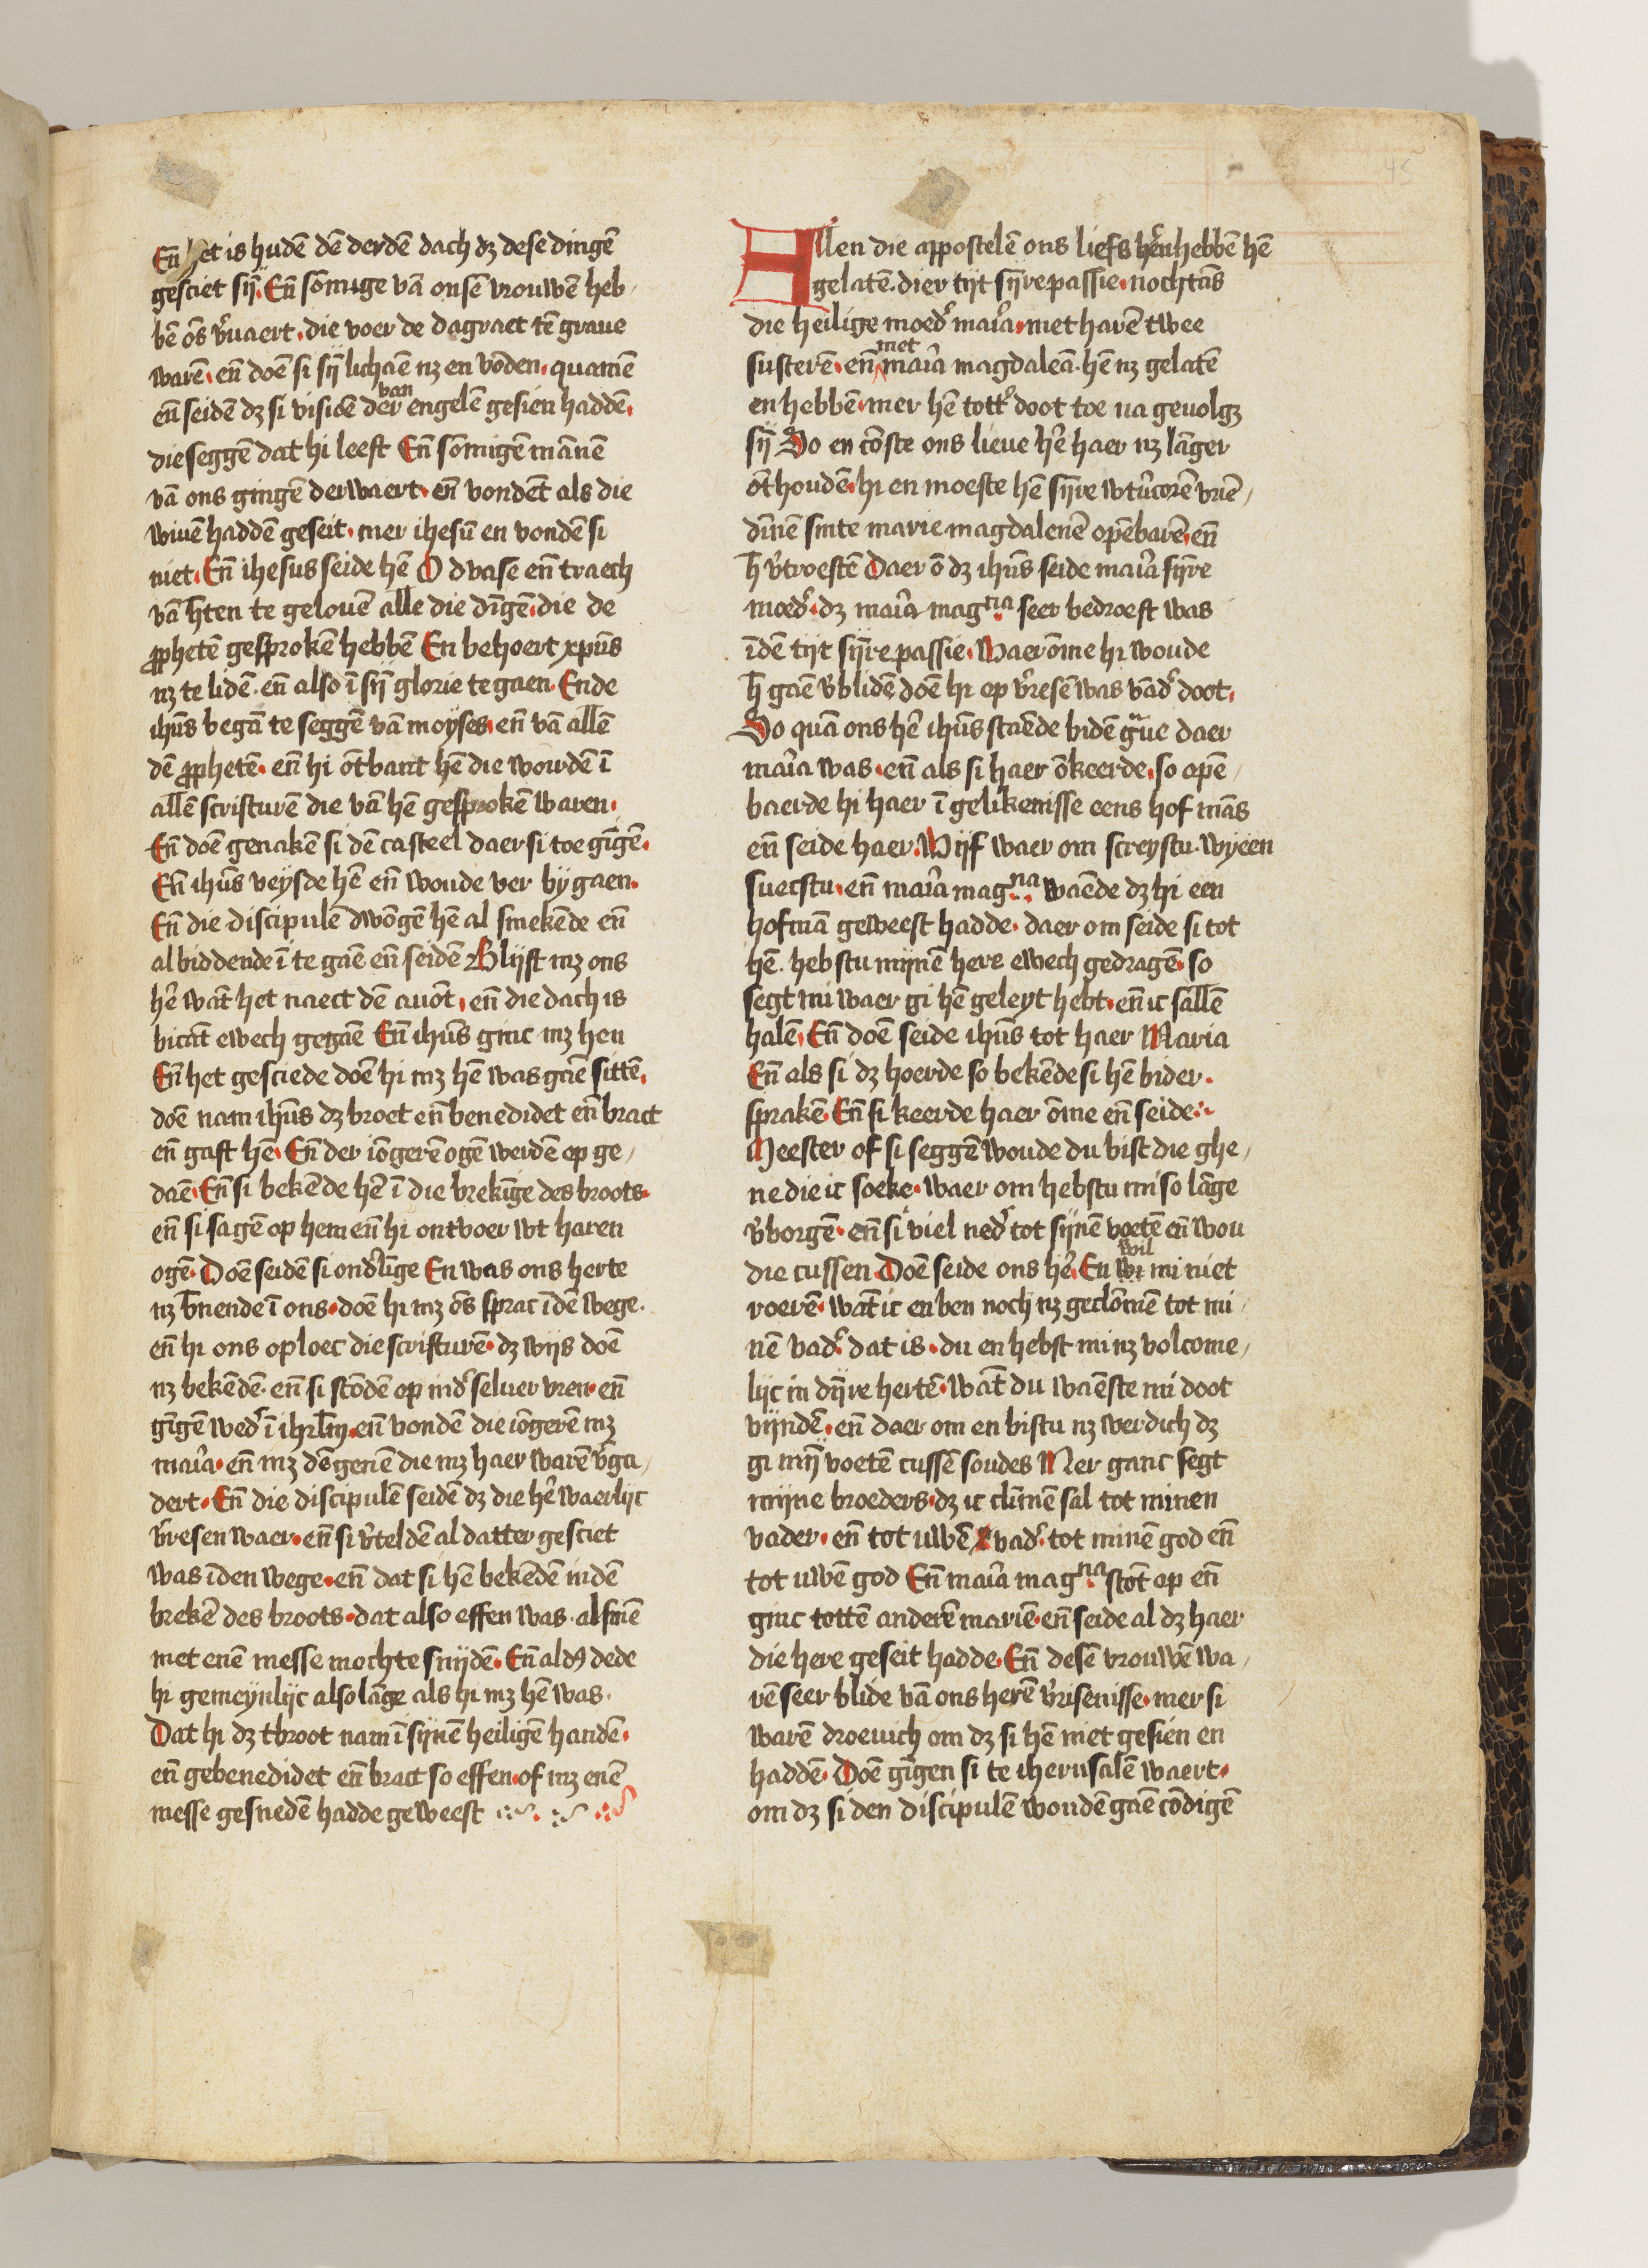 45
En̄ het is hudē dē derdē dach dʒ dese dingē
gesciet sij̄. En̄ sōmige vā onsē vrouwē heb
bē ōs v̓uaert. die voer de dagraet tē graue
warē. en̄ doē si sij̄ lichāe nʒ en vōden. quamē
en̄ seidē dʒ si visiōē der van engelē gesien haddē.
die seggē dat hi leeft En̄ sōmigē mānē
vā ons gingē derwaert. en̄ vondēt als die
wiuē haddē geseit. mer ihesū en vondē si
niet. En̄ ihesus seide hē O dwase en̄ traech
vā h̄ten te gelouē alle die dīgē. die de
ꝓphetē gesprokē hebbē En behoert xp̄us
nʒ te lidē. en̄ also ī sij̄ glorie te gaen. Ende
ihūs begā te seggē vā moyses. en̄ vā allē
dē ꝓphetē. en̄ hi ōtbant hē die wordē ī
allē scrifturē die vā hē gesprokē waren.
En̄ doē genakē si dē casteel daer si toe gīgē.
En̄ ihūs veysde hē en̄ woude ver by gaen.
En̄ die discipulē dwōgē hē al smekēde en̄
al biddende ī te gaē en̄ seidē Blijft mʒ ons
hē̓ wāt het naect dē auōt. en̄ die dach is
bicāt ewech gegaē En̄ ihūs ginc mʒ hen
En̄ het gesciede doē hi mʒ hē was gaē sittē.
doē nam ihūs dʒ broet en̄ benedidet en̄ bract
en̄ gaft hē. En̄ der iōgerē ogē werdē op ge
daē. En̄ si bekēde hē ī die brekīge des broots.
en̄ si sagē op hem en̄ hi ontvoer wt haren
ogē. Doē seidē si ond̓līge En was ons herte
nʒ b̄nende ī ons. doē hi mʒ ōs sprac īdē wege.
en̄ hi ons oploec die scrifturē. dʒ wijs doē
nʒ bekēdē. en̄ si stōdē op ind̓ seluer vren. en̄
gīgē wed̓ ī ihrl̄m. en̄ vondē die iōgerē mʒ
mar̓ia. en̄ mʒ dēgenē die mʒ haer warē v̓ga
dert. En̄ die discipulē seidē dʒ die hē̓ waerlijc
v̓resen waer. en̄ si v̓teldē al datter gesciet
was īden wege. en̄ dat si hē bekēdē indē
brekē des broots. dat also effen was. alsmē
met enē messe mochte snijdē. En̄ aldꝰ dede
hi gemeynlijc also lāge als hi mʒ hē was.
Dat hi dʒ tbroot nam ī sijnē heiligē handē.
en̄ gebenedidet en̄ bract so effen. of mʒ enē
messe gesnedē hadde geweest
Allen die appostelē ons liefs hērē hebbē hē
gelatē. dier tijt sijre passie. nochtās
die heilige moed̓ mar̓ia. met harē twee
susterē. en̄ met mar̓ia magdaleā. hē nʒ gelatē
en hebbē. mer hē tott̓ doot toe na geuolgʒ
sij̄ Do en cōste ons lieue hē̓ haer nʒ lāger
ōthoudē. hi en moeste hē sijre wtūcorē vriē
dīnē sinte marie magdalenē opēbarē. en̄
h̄ v̓troestē Daer ō dʒ ihūs seide mar̓ia sijre
moed̓. dʒ mar̓ia magna seer bedroeft was
īdē tijt sijre passie. Waerōme hi woude
h̄ gaē v̓blidē doē hi op v̓resē was vād̓ doot.
Do quā ons hē̓ ihūs staēde bidē gᵃue daer
mar̓ia was. en̄ als si haer ōkeerde. so opē
baerde hi haer ī gelikenisse eens hof mās
en̄ seide haer. Wijf waer om screystu. wyēen
suecstu. en̄ mar̓ia magna waēde dʒ hi een
hofmā geweest hadde. daer om seide si tot
hē. hebstu mijnē here ewech gedragē. so
segt mi waer gi hē geleyt hebt. en̄ ic sallē
halē. En̄ doē seide ihūs tot haer Maria
En̄ als si dʒ hoerde so bekēde si hē bider.
sprakē. En̄ si keerde haer ōme en̄ seide
Meester of si seggē woude du bist die ghe
ne die ic soeke. waer om hebstu mi so lāge
v̓borgē. en̄ si viel ned̓ tot sijnē voetē en̄ wou
die cussen. Doē seide ons hē̓. En wil mi niet
roerē. wāt ic en ben noch nʒ geclōmē tot mi
nē vad̓. dat is. du en hebst mi nʒ volcome
lijc in dijre hertē. wāt du waēste mi doot
vijndē. en̄ daer om en bistu nʒ werdich dʒ
gi mij̄ voetē cussē soudes Mer ganc segt
mijne broeders. dʒ ic clīmē sal tot minen
vader. en̄ tot uwē vad̓. tot minē god en̄
tot uwē god En̄ mar̓ia magna stōt op en̄
ginc tottē anderē mariē. en̄ seide al dʒ haer
die here geseit hadde. En̄ desē vrouwē wa
rē seer blide vā ons herē v̓risenisse. mer si
warē droeuich om dʒ si hē niet gesien en
haddē. Doē gīgen si te iherusalē waert.
om dʒ si den discipulē woudē gaē cōdigē